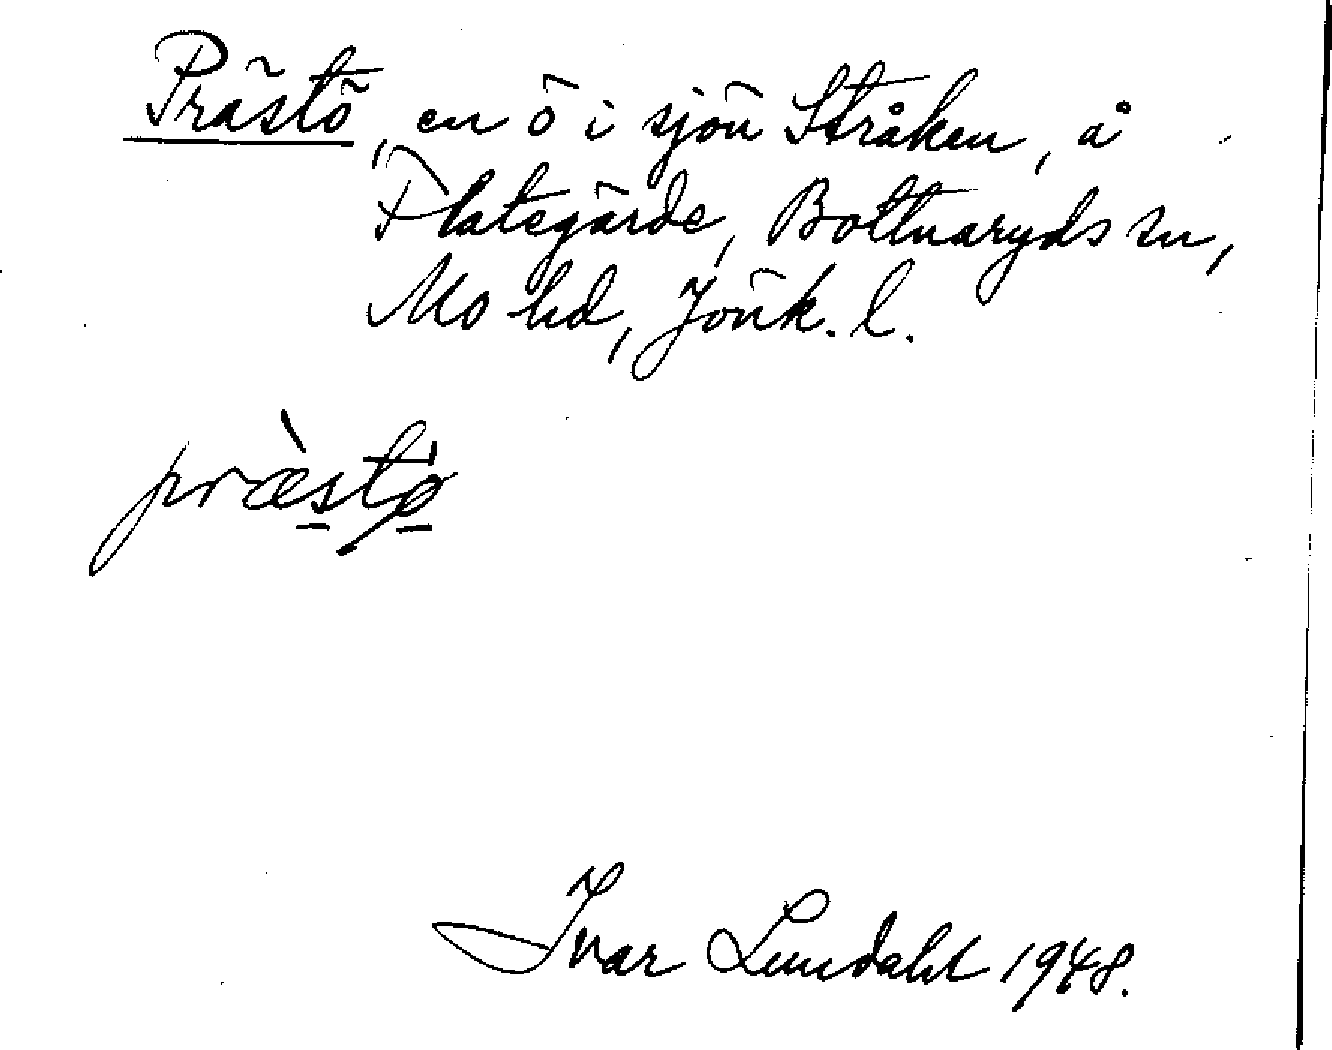 Prästö, en ö i sjön Stråken, å
Flatsgärde, Bottnaryds sn,
Mo hd, Jönk. l.
præ̀stø
Ivar Lundahl 1948.